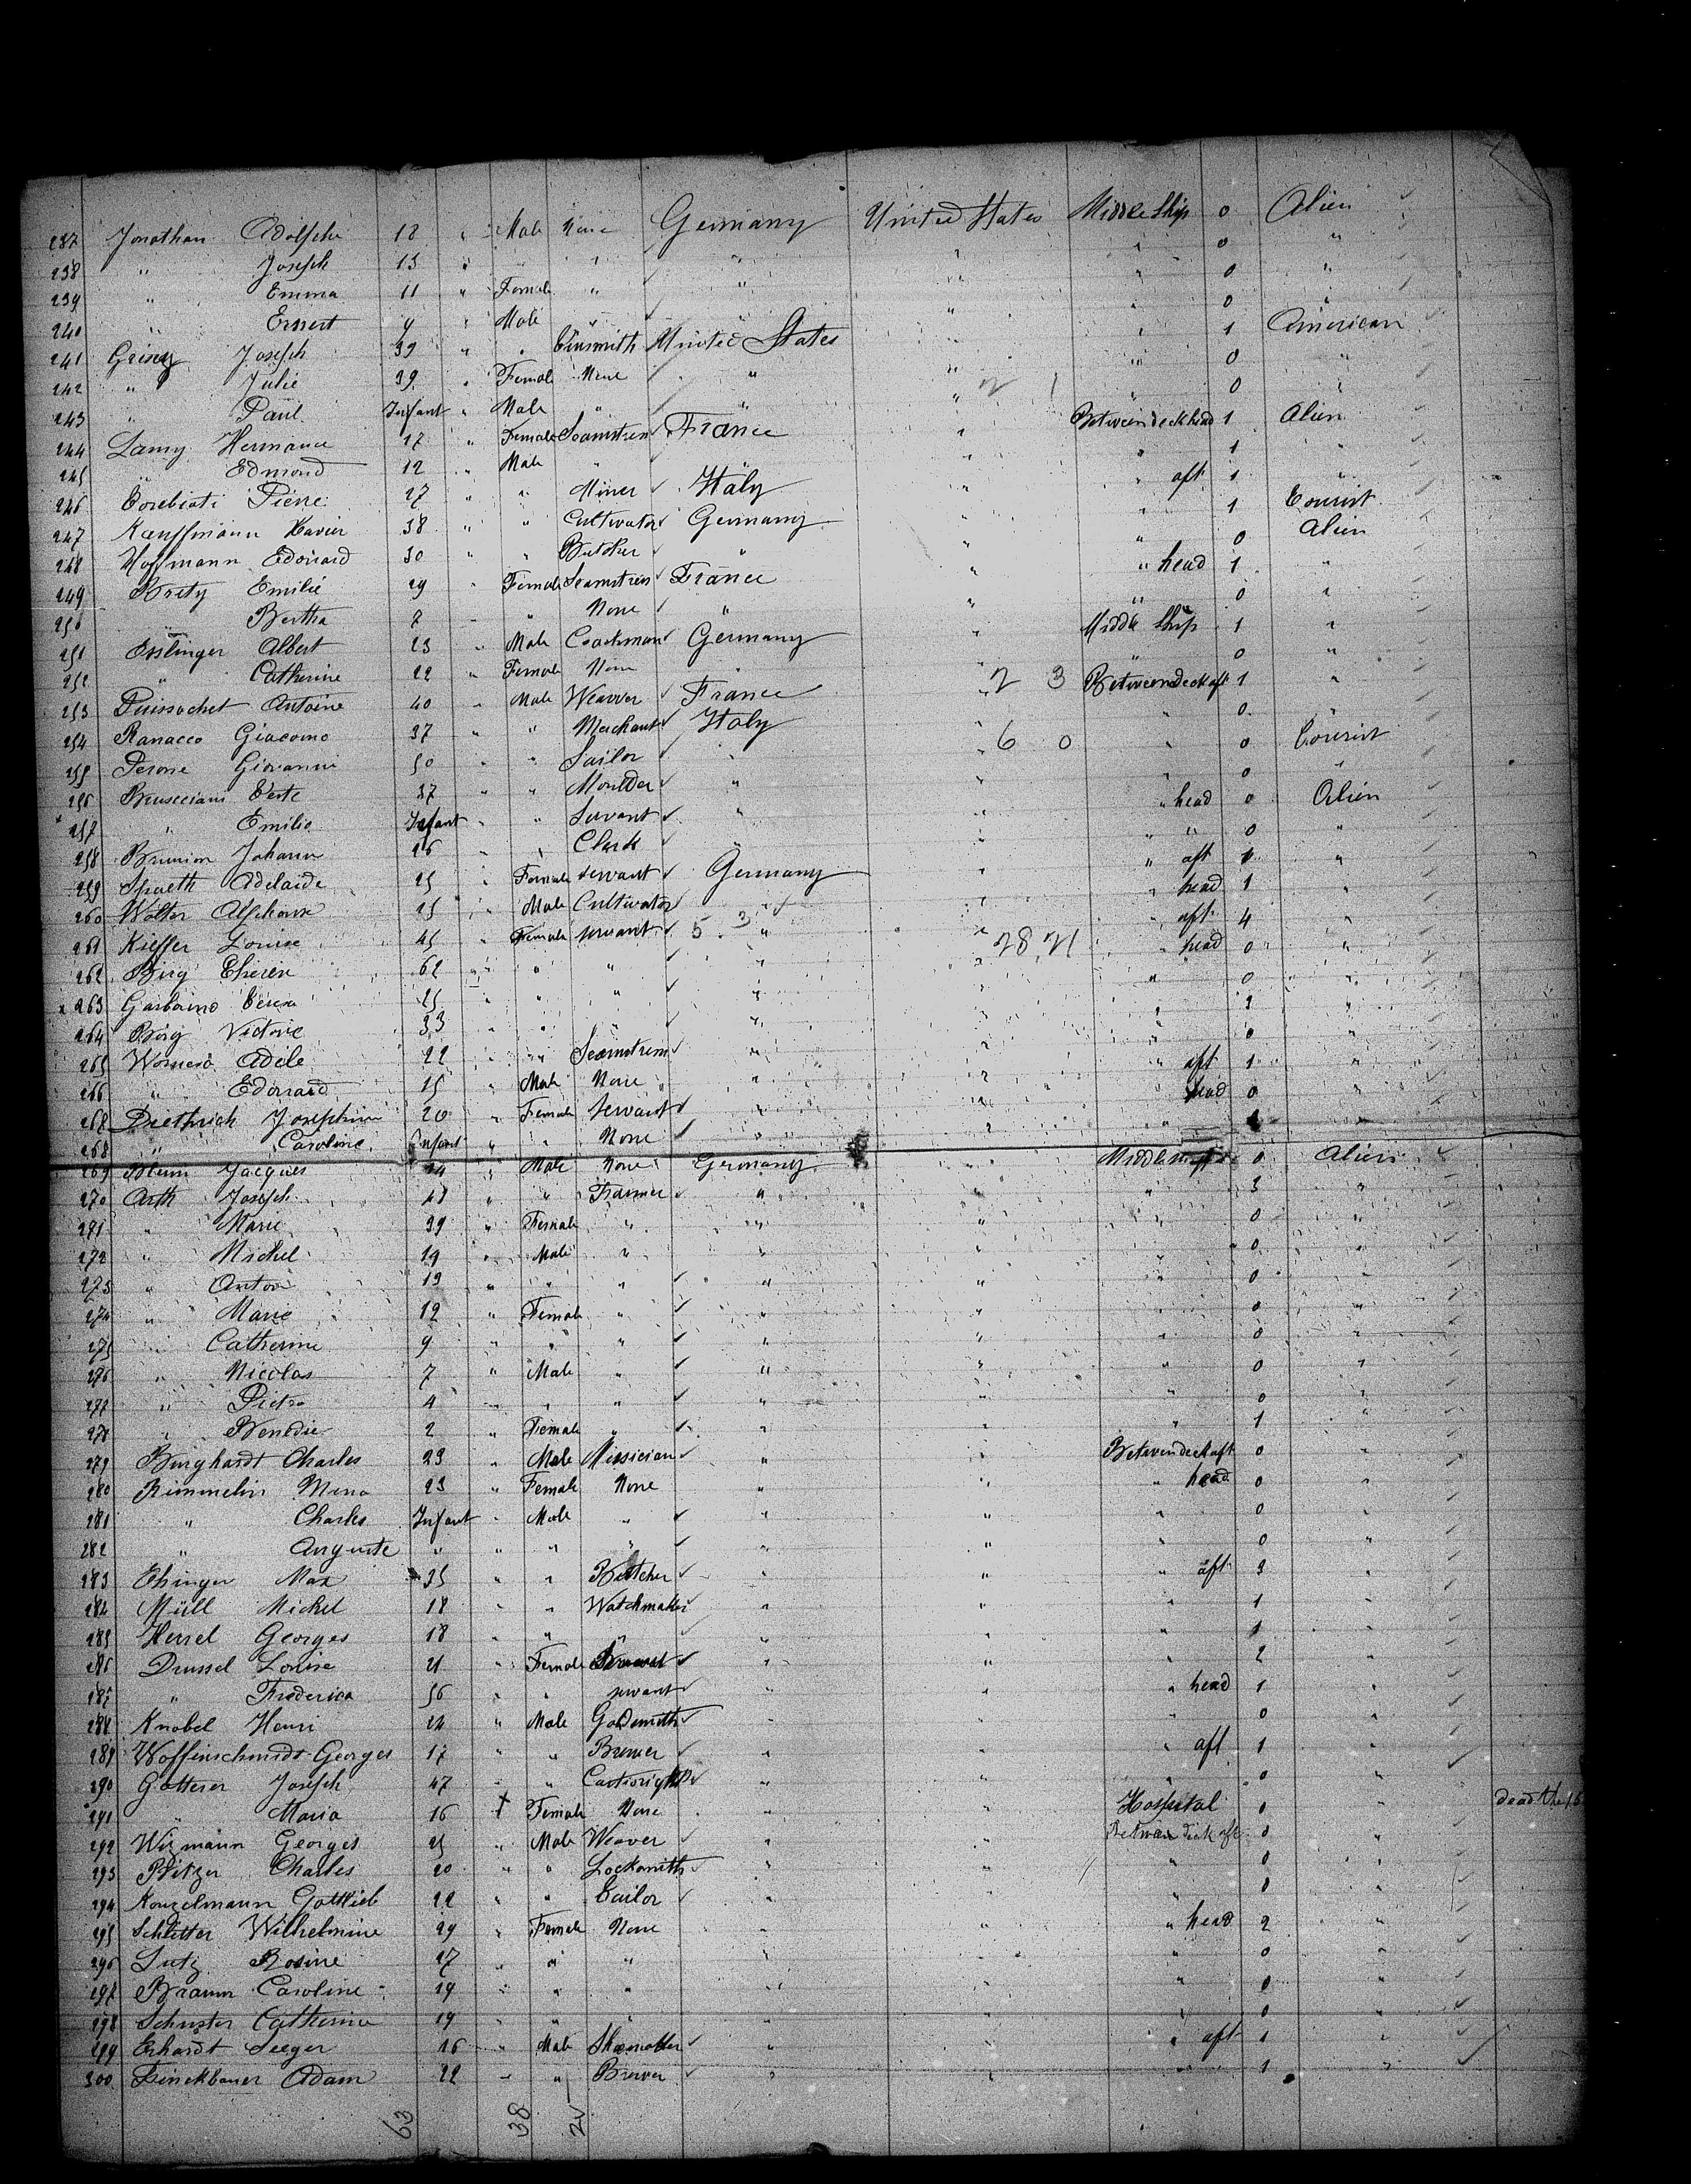 237 Jonathan Adolphe 18 " Male None Germany United States Middle Ship 0 Alien
238 " Joseph 13 " " " " " " 0 "
239 " Emma 11 " Female " " " " 0 "
240 " Ernest 9 " Male " " " " 0 "
241 Grisey Joseph 39 " " Tinsmith United States " " 1 American
242 " Julie 39 " Female None " " " 0 "
243 " Paul Infant " Male " " " 2 1 " 0 "
244 Lamy Hermance 17 " Female Seamstress France " Betweendeck head 1 Alien
245 " Edmond 12 " Male " " " " 1 "
246 Pierre 27 " " Miner Italy " " aft 1 "
247 Kauffmann Xavier 38 " " Cultivator Germany " " 1 Tourist
248 Hoffmann Edouard 30 " " Butcher " " " 0 Alien
249 Emilie 29 " Female Seamstress France " " head 1 "
250 " Bertha 7 " " None " " " 0 "
251 Esslinger Albert 23 " Male Coachman Germany " Middle Ship 1 "
252 " Catherine 22 " Female None " " " 0 "
253 Puissochet Antoine 40 " Male Weaver France " 2 3 Betweendeck aft 1 "
254 Ranacco Giacomo 37 " " Merchant Italy " " 0 "
255 Perone Giovanni 50 " " Sailor " " 6 0 " 0 Tourist
256 Brusciani 37 " " Moulder " " " 0 "
257 " Emilio Infant " " Servant " " " head 0 Alien
258 Brunion Johann 26 " " Clerk " " " " 0 "
259 Spaeth Adelaide 25 " Female servant Germany " " aft 1 "
260 Wolter Alphonse 25 " Male Cultivator " " " head 1 "
261 Kieffer Louise 45 " Female servant 5 3 " " " aft 4 "
262 Birg 62 " " " " " 28 21 " head 0 "
263 Garbaino Teresa 25 " " " " " " 0 "
264 Birg Victorie 33 " " " " " " 1 "
265 Adele 22 " " Seamstress " " " 0 "
266 " Edouard 15 " Male None " " " aft 1 "
267 Diethrich Josephine 20 " Female Servant " " " head 0 "
268 " Caroline Infant " " None " " "
269 Blum Jacques 24 " Male None Germany " Middle 0 Alien
270 Arth Joseph 48 " " Farmer " " " 3 "
271 " Marie 39 " Female " " " " 0 "
272 " Michel 19 " Male " " " " 0 "
273 " Anton 13 " " " " " " 0 "
274 " Marie 12 " Female " " " " 0 "
275 " Catherine 9 " " " " " " 0 "
276 " Nicolas 7 " Male " " " " 0 "
277 " Pietro 4 " " " " " " 0 "
278 " Benedie 2 " Female " " " " 1 "
279 Burghardt Charles 23 " Male Musician " " Betweendeck aft 0 "
280 Rimmelin Mina 23 " Female None " " " head 0 "
281 " Charles Infant " Male " " " " 0 "
282 " Auguste " " " " " " " 0 "
283 Ehinger Max 35 " " Butcher " " " aft 3 "
284 Müll Michel 18 " " Watchmaker " " " 1 "
285 Georges 18 " " " " " " 1 "
286 Drussel Louise 21 " Female " " " 2 "
287 " Frederica 56 " " servant " " " head 1 "
288 Knobel Henri 24 " Male Goldsmith " " " 0 "
289 Woffenschmidt Georges 17 " " Brewer " " " aft 1 "
290 Gotterer Joseph 47 " " Cartwright " " " 0 "
291 " Maria 16 † Female None " " Hospital 0 " dead the 15
292 Wizmann Georges 25 " Male Weaver " " Between deck aft 0 "
293 Charles 20 " " Locksmith " " " 0 "
294 Konzelmann Gottlieb 22 " " Tailor " " " 0 "
295 Schlitter Wilhelmine 29 " Female None " " " head 2 "
296 Lutz Rosine 27 " " " " " " 0 "
297 Braunn Caroline 19 " " " " " " 0 "
298 Schuster Catherine 19 " " " " " " 0 "
299 Erhardt Seeger 26 " Male Shoemaker " " " aft 1 "
300 Finckbauer Adam 22 " " Brewer " " " 1 "
63 38 25